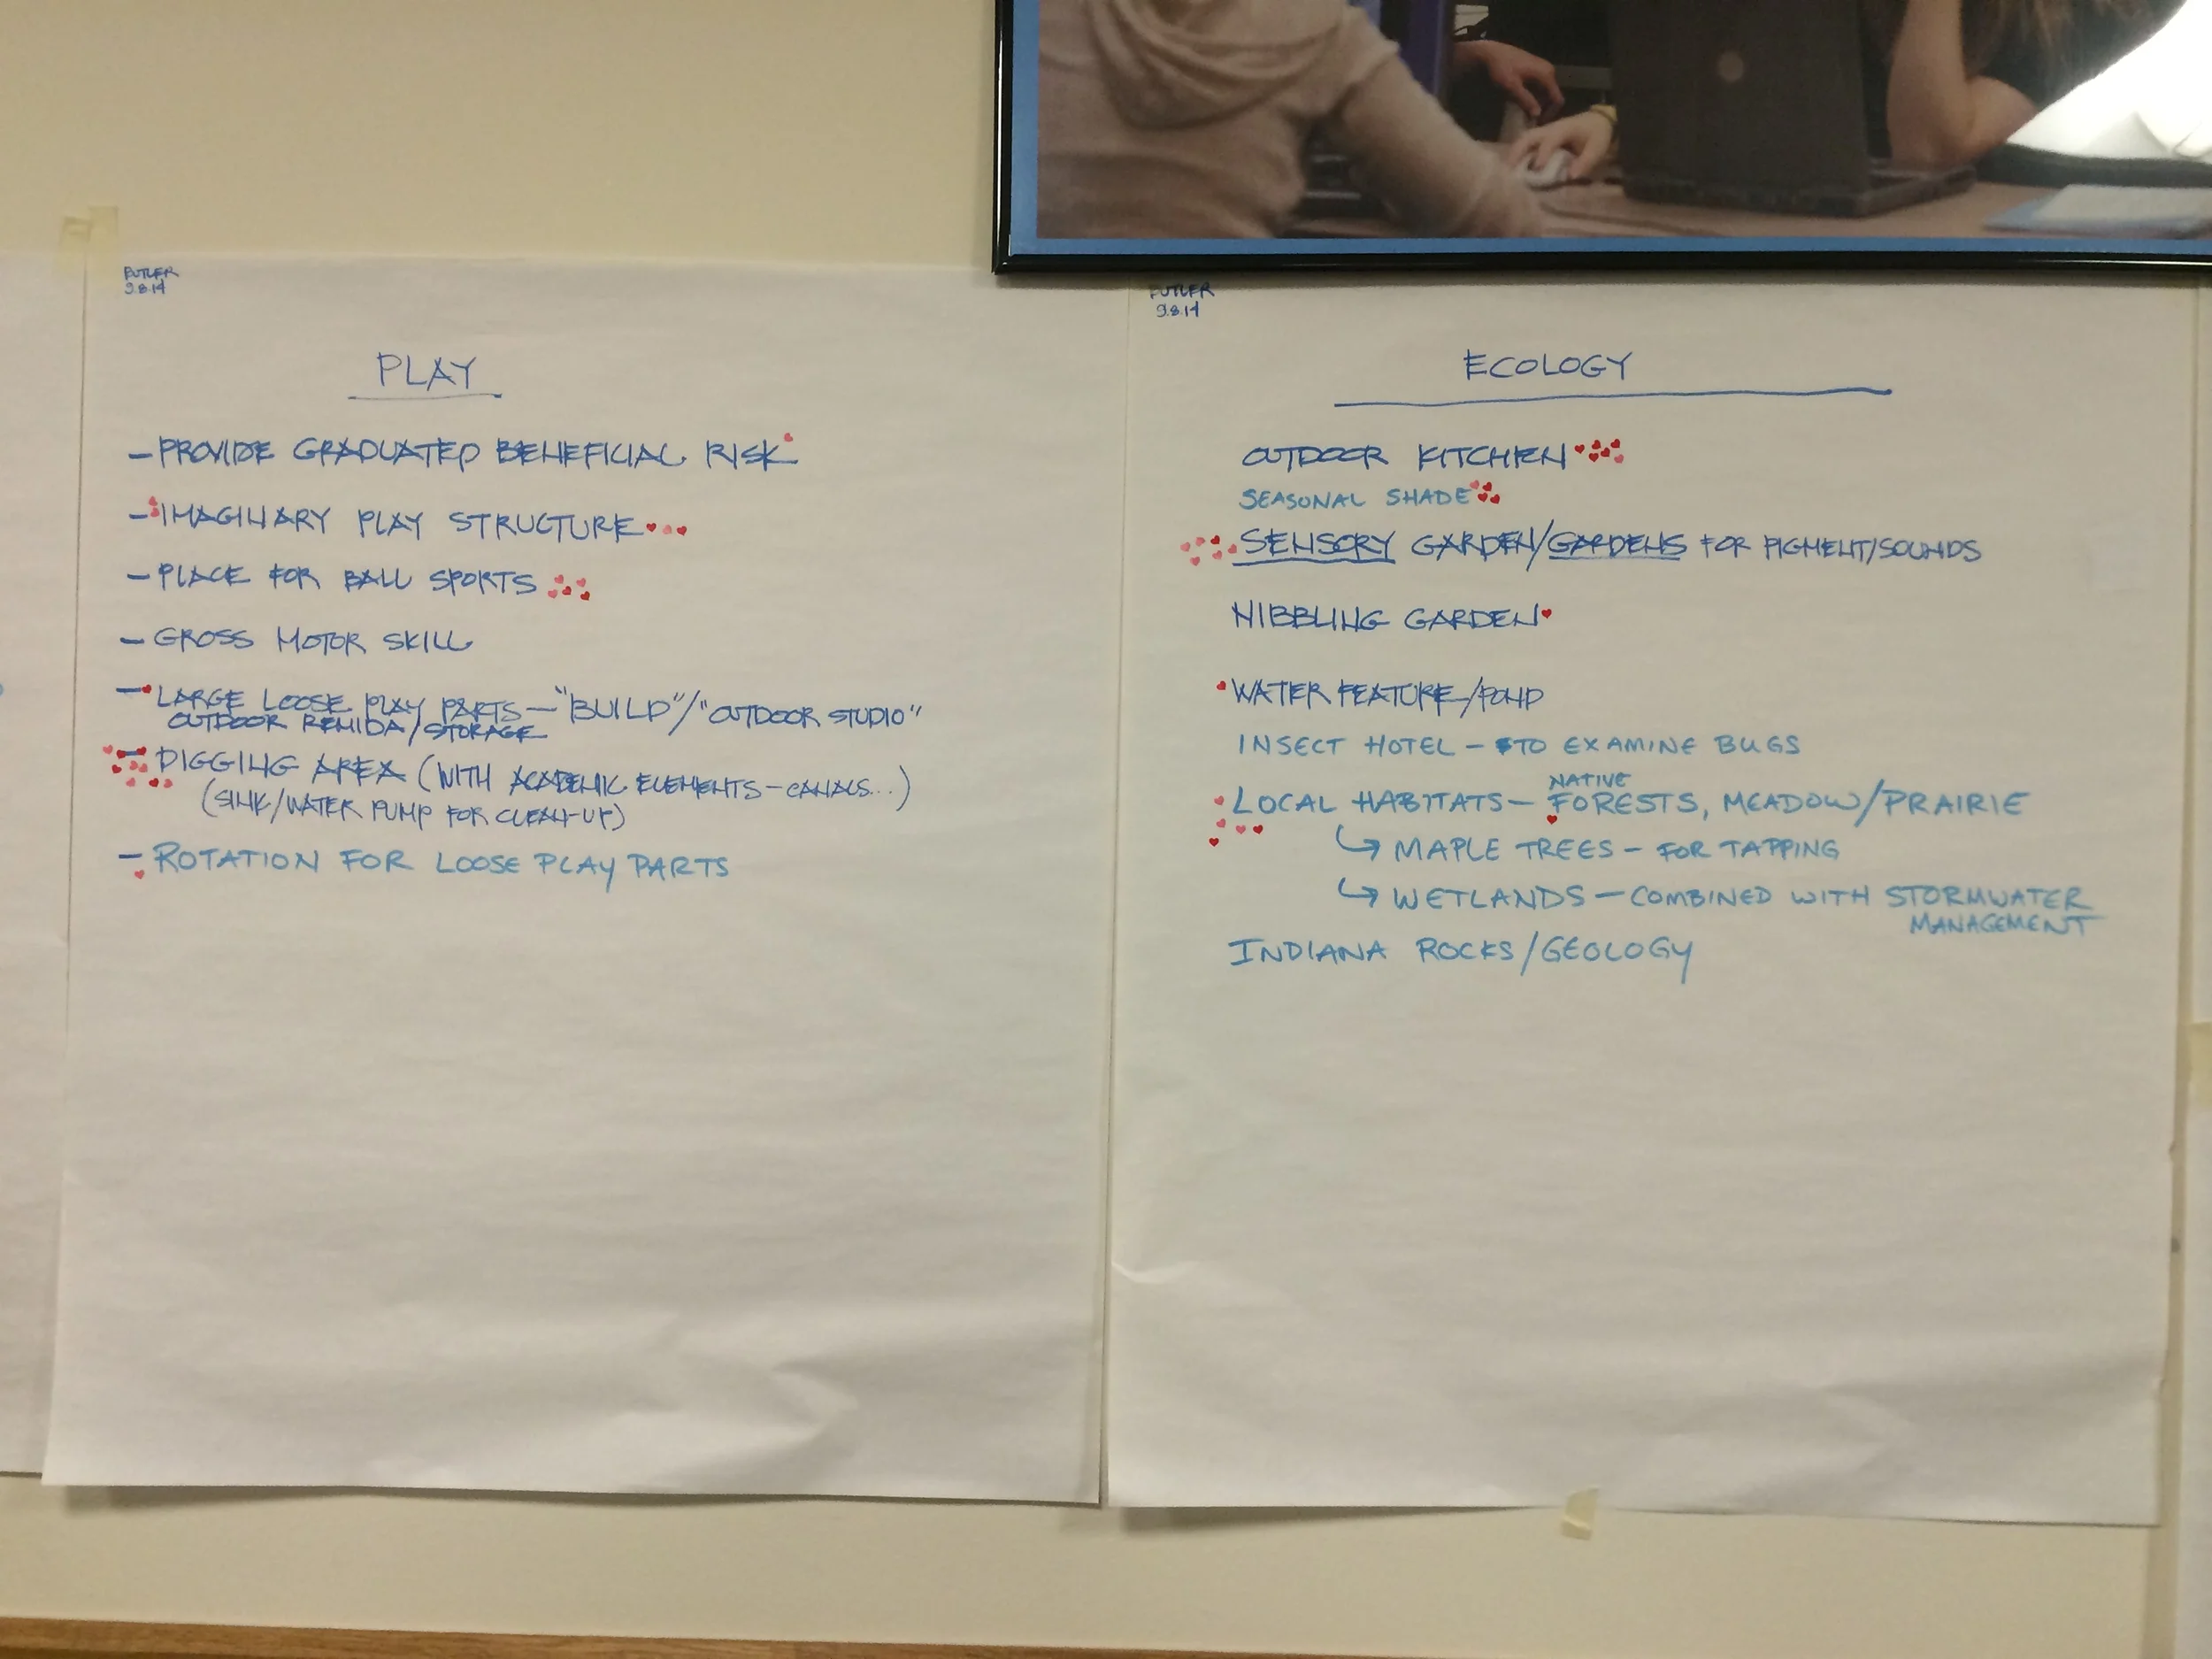 BUTLER
9.8.14
PLAY
– PROVIDE GRADUATED BENEFICIAL RISK
– IMAGINARY PLAY STRUCTURE
– PLACE FOR BALL SPORTS
– GROSS MOTOR SKILL
– LARGE LOOSE PLAY PARTS – "BUILD"/"OUTDOOR STUDIO"
OUTDOOR REMIDA/STORAGE
– DIGGING AREA (WITH ACADEMIC ELEMENTS – CANALS...)
(SINK/WATER PUMP FOR CLEAN-UP)
– ROTATION FOR LOOSE PLAY PARTS
BUTLER
9.8.14
ECOLOGY
OUTDOOR KITCHEN
SEASONAL SHADE
SENSORY GARDEN/GARDENS FOR PIGMENT/SOUNDS
NIBBLING GARDEN
WATER FEATURE/POND
INSECT HOTEL – TO EXAMINE BUGS
NATIVE
LOCAL HABITATS – FORESTS, MEADOW/PRAIRIE
↳ MAPLE TREES – FOR TAPPING
↳ WETLANDS – COMBINED WITH STORMWATER
MANAGEMENT
INDIANA ROCKS/GEOLOGY